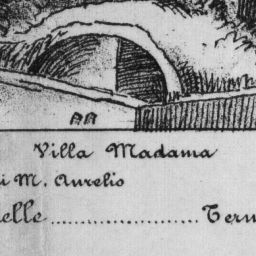 Villa Madama
i M. Aurelio
elle ..................... Term